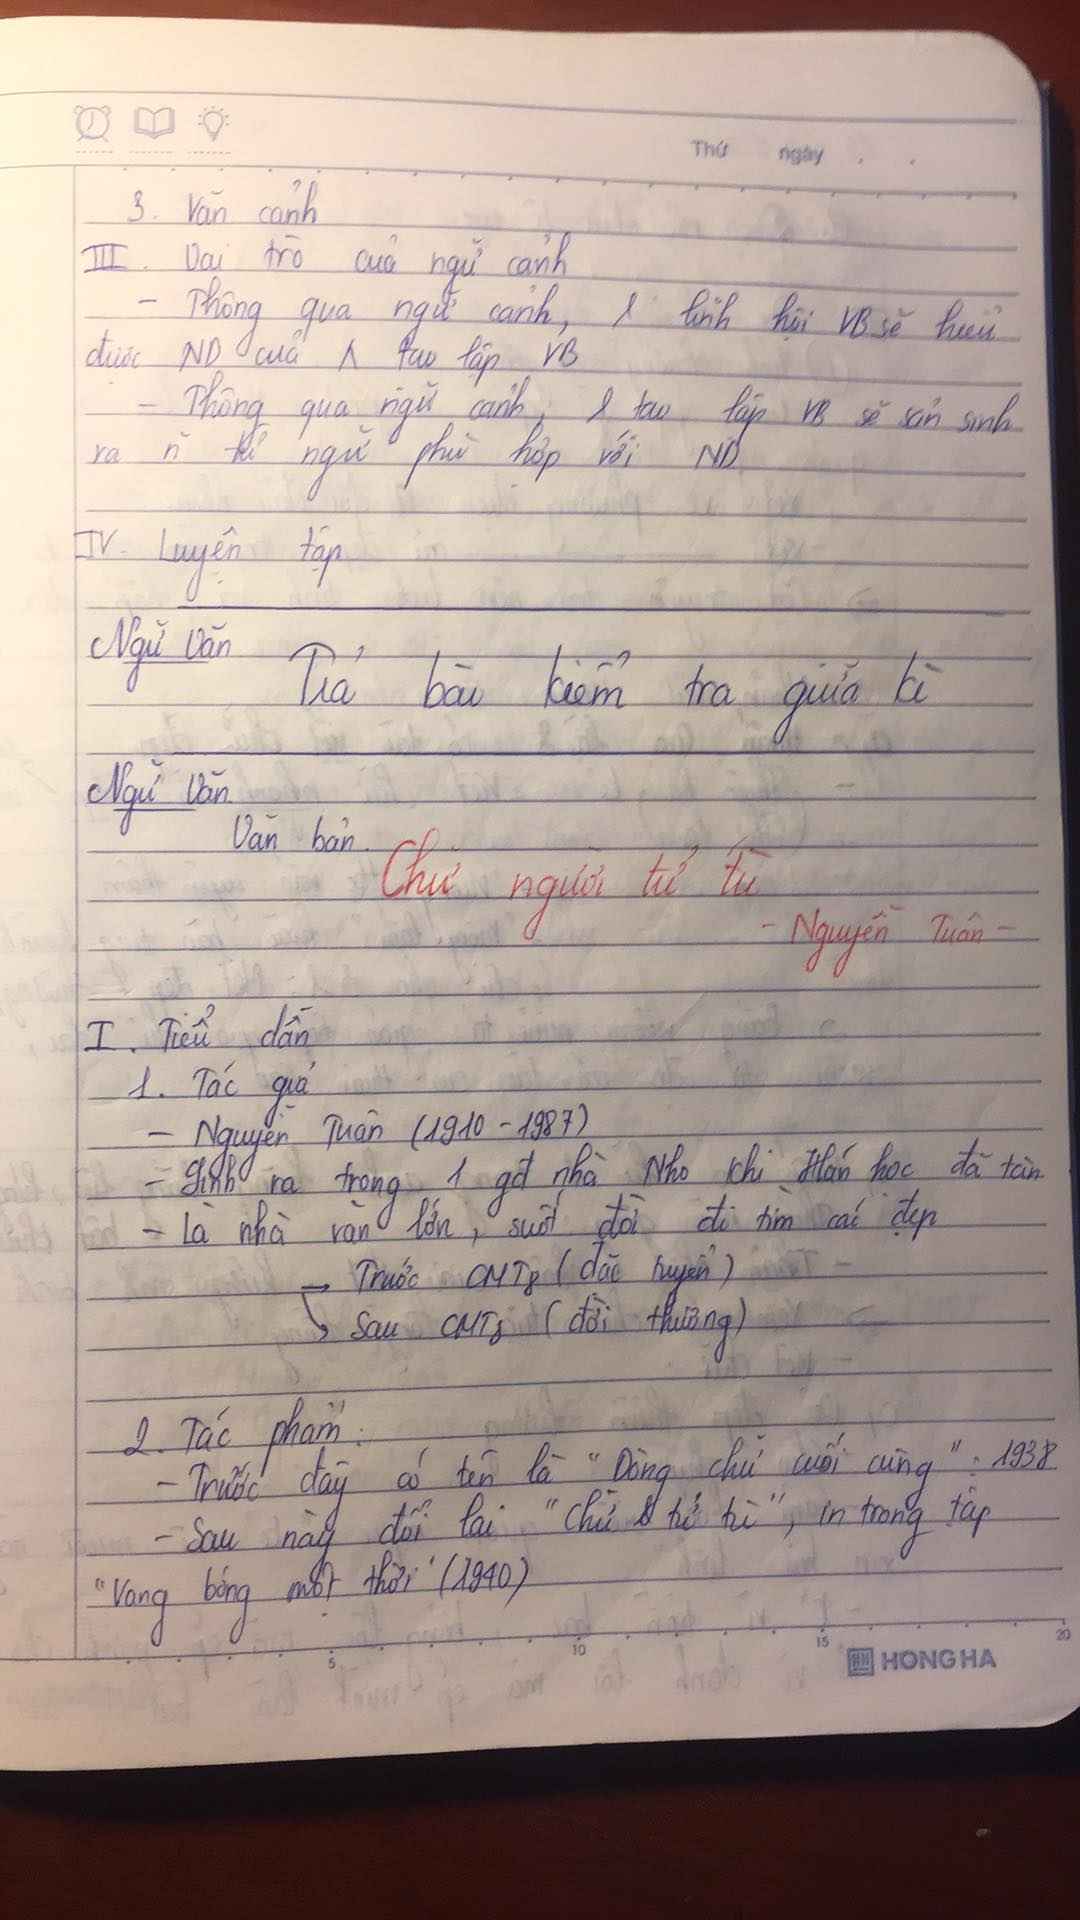 Thứ ngày . .
3. Văn cảnh
III. Vai trò của ngữ cảnh
- Thông qua ngữ cảnh, lĩnh hội VB sẽ hiểu
được ND của tạo lập VB
- Thông qua ngữ cảnh, tạo lập VB sẽ sản sinh
ra n từ ngữ phù hợp với ND
IV. Luyện tập
Ngữ Văn
Trả bài kiểm tra giữa kì
Ngữ Văn
Văn bản.
Chữ người tử tù
- Nguyễn Tuân -
I. Tiểu dẫn
1. Tác giả
- Nguyễn Tuân (1910 - 1987)
- Sinh ra trong 1 gđ nhà Nho khi Hán học đã tàn
- Là nhà văn lớn, suốt đời đi tìm cái đẹp
→ Trước CMT8 (đặc tuyển)
↳ Sau CMT8 (đời thường)
2. Tác phẩm:
- Trước đây có tên là "Dòng chữ cuối cùng" : 1938
- Sau này đổi lại "Chữ tử tù", in trong tập
"Vang bóng một thời" (1940)
5 10 15 20
HONG HA